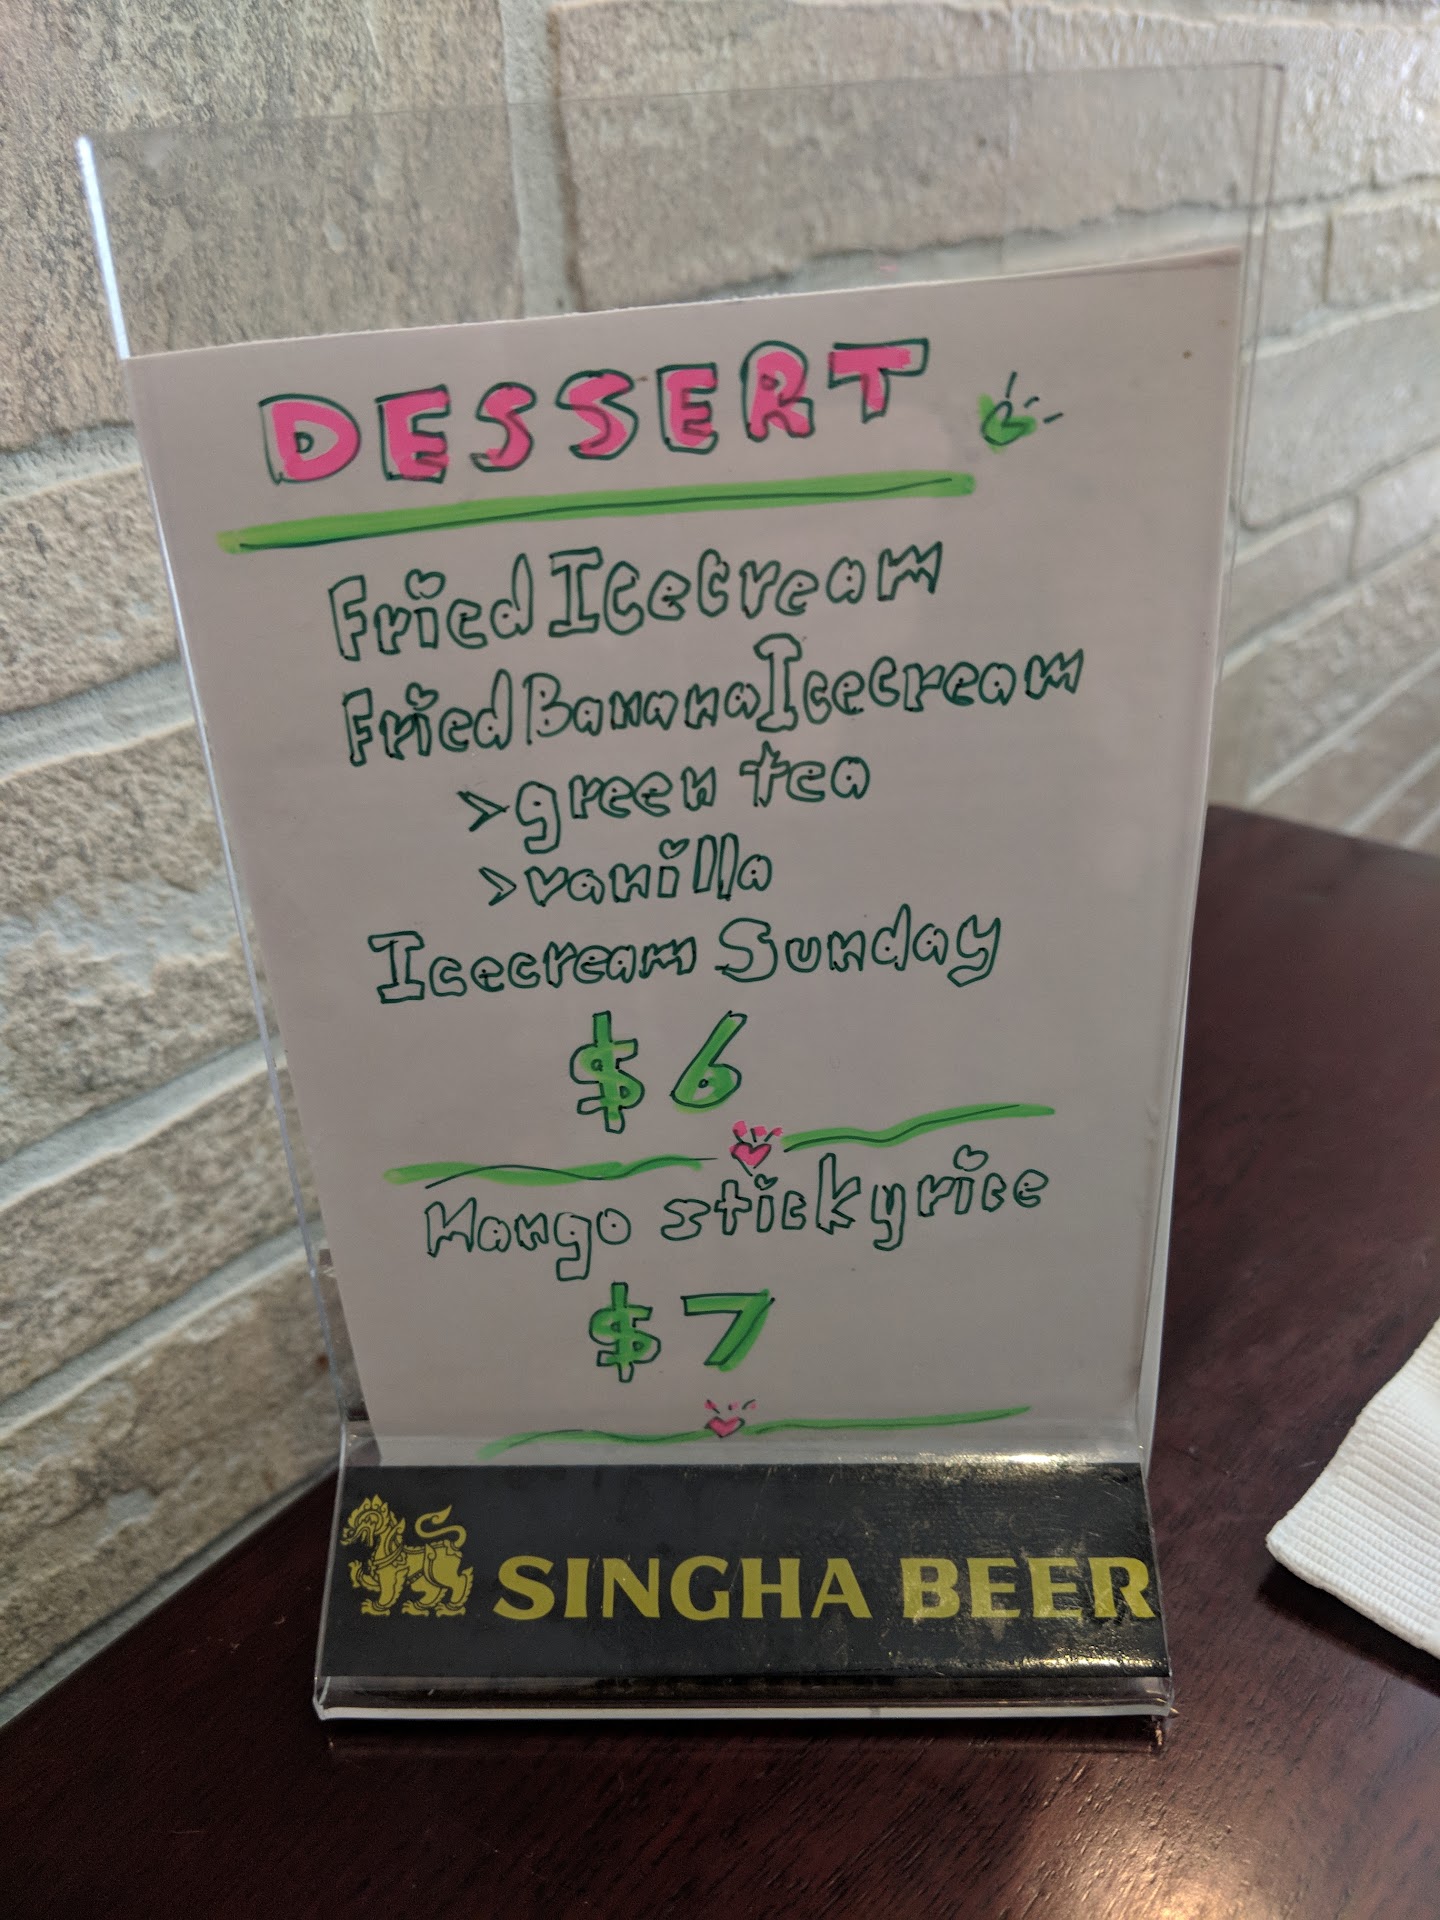 DESSERT
Fried Icecream
Fried Banana Icecream
>green tea
>vanilla
Icecream Sunday
$6
Mango stickyrice
$7
SINGHA BEER